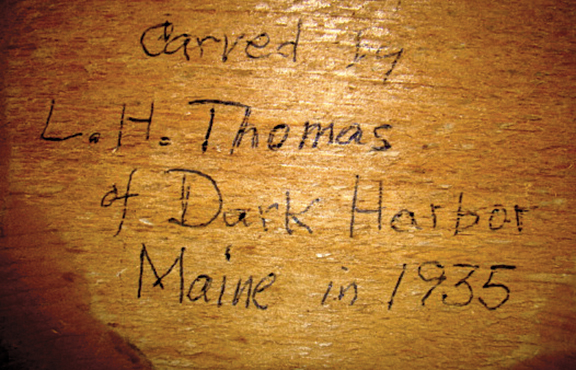 Carved by
L.H. Thomas
of Dark Harbor
Maine in 1935